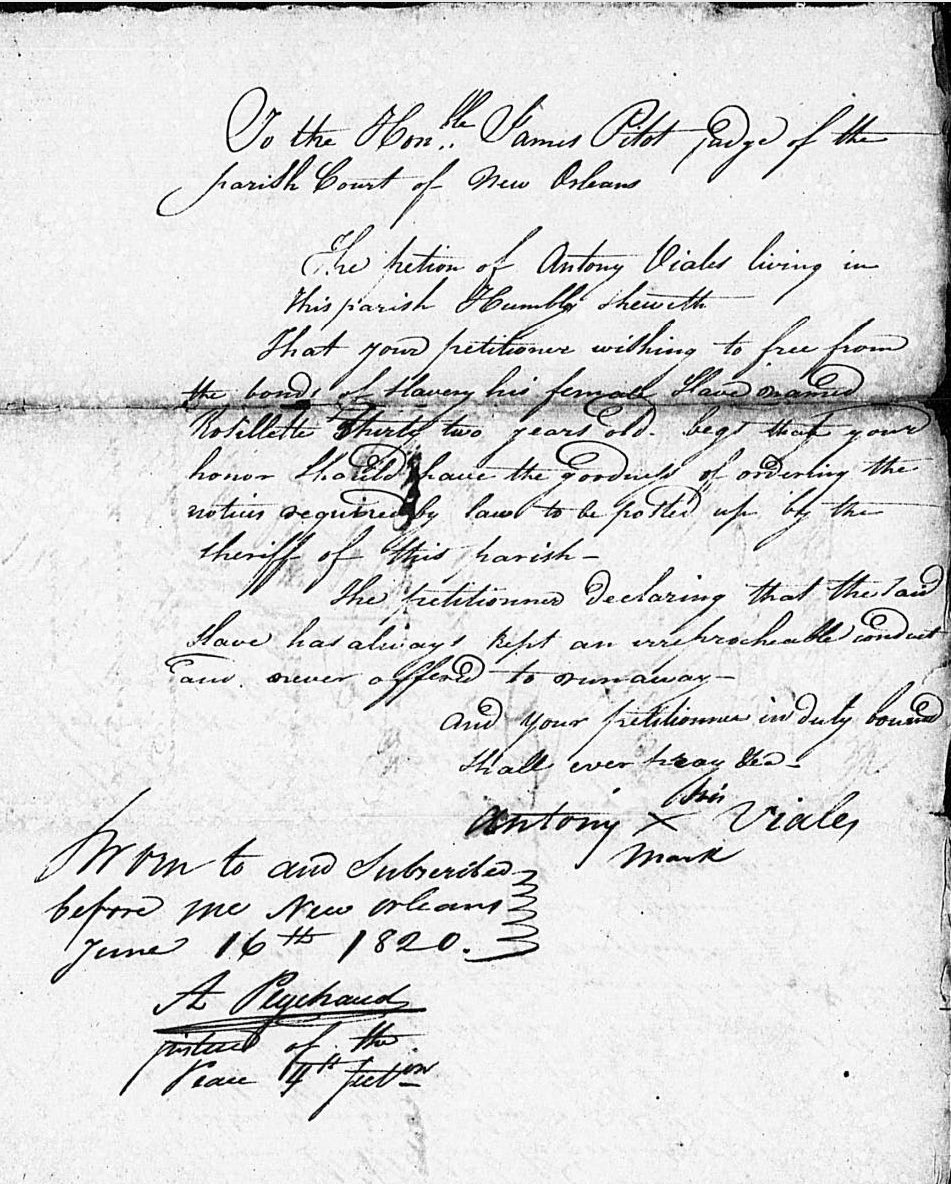 To the Hon.ble James Pitot Judge of the
parish Court of New Orleans
The petion of Antony Viales living in
this parish Humbly sheweth
That your petitionner wishing to free from
the bonds of slavery his female Slave named
Rosillette Thirty two years old. begs that your
honor Should have the goodness of ordering the
notices required by law to be posted up by the
sheriff of this parish –
The petitionner Declaring that the said
Slave has always kept an irreprocheable conduit
and never offered to runaway –
And your petitionner in duty bound
shall ever pray &ca –
his
Antony X Viales
mark
Sworn to and Subscribed
before me New Orleans
June 16th 1820.
A Peychaud
justice of the
Peace 4th Section